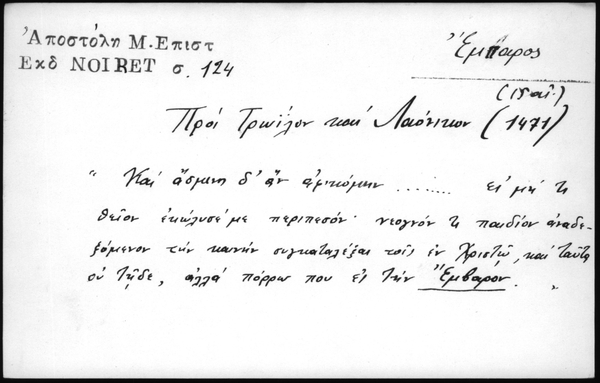 Ἀποστόλη Μ. Επιστ
Εκδ NOIRET σ. 124
Ἔμπαρος
(15 αἰ.)
Πρὸς Τρωίλον καὶ Λαόνικον (1471)
“ Καὶ ἄσμενη δ' ἂν ἀφικόμην ........ εἰ μή τι
θεῖον ἐκώλυσέ με περιπεσόν· νεογνόν τι παιδίον ἀναδε-
ξόμενον τὴν καινήν συγκαταλέξαι τοῖς ἐν Χριστῷ, καὶ ταῦτα
οὐ τῇδε, ἀλλά πόρρω που εἰ τὴν Ἔμβαρον. „